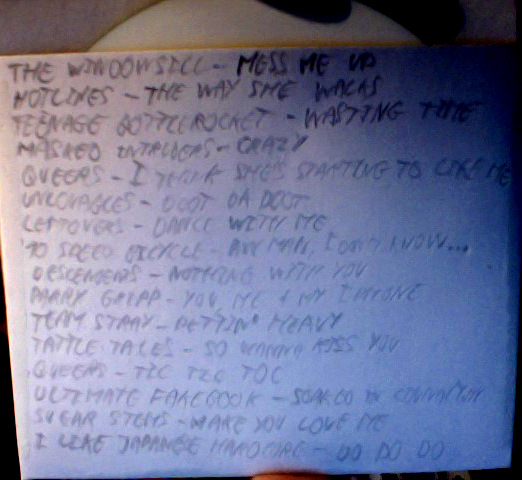 THE WINDOWSILL - MESS ME UP
HOTLINES - THE WAY SHE WALKS
TEENAGE BOTTLEROCKET - WASTING TIME
MASKED INTRUDERS - CRAZY
QUEERS - I THINK SHE'S STARTING TO LIKE ME
UNLOVABLES - DOOT DA DOOT
LEFTOVERS - DANCE WITH ME
10 SPEED BICYCLE - AW MAN, I DON'T KNOW...
DESCENDENTS - NOTHING WITH YOU
PARRY GRIPP - YOU, ME + MY IPHONE
TEAM STRAY - PETTIN' HEAVY
TATTLE TALES - SO WANNA KISS YOU
QUEERS - TIC TIC TOC
ULTIMATE FAKEBOOK - SOAKED IN CINNAMON
SUGAR STEMS - MAKE YOU LOVE ME
I LIKE JAPANESE HARDCORE - DO DO DO